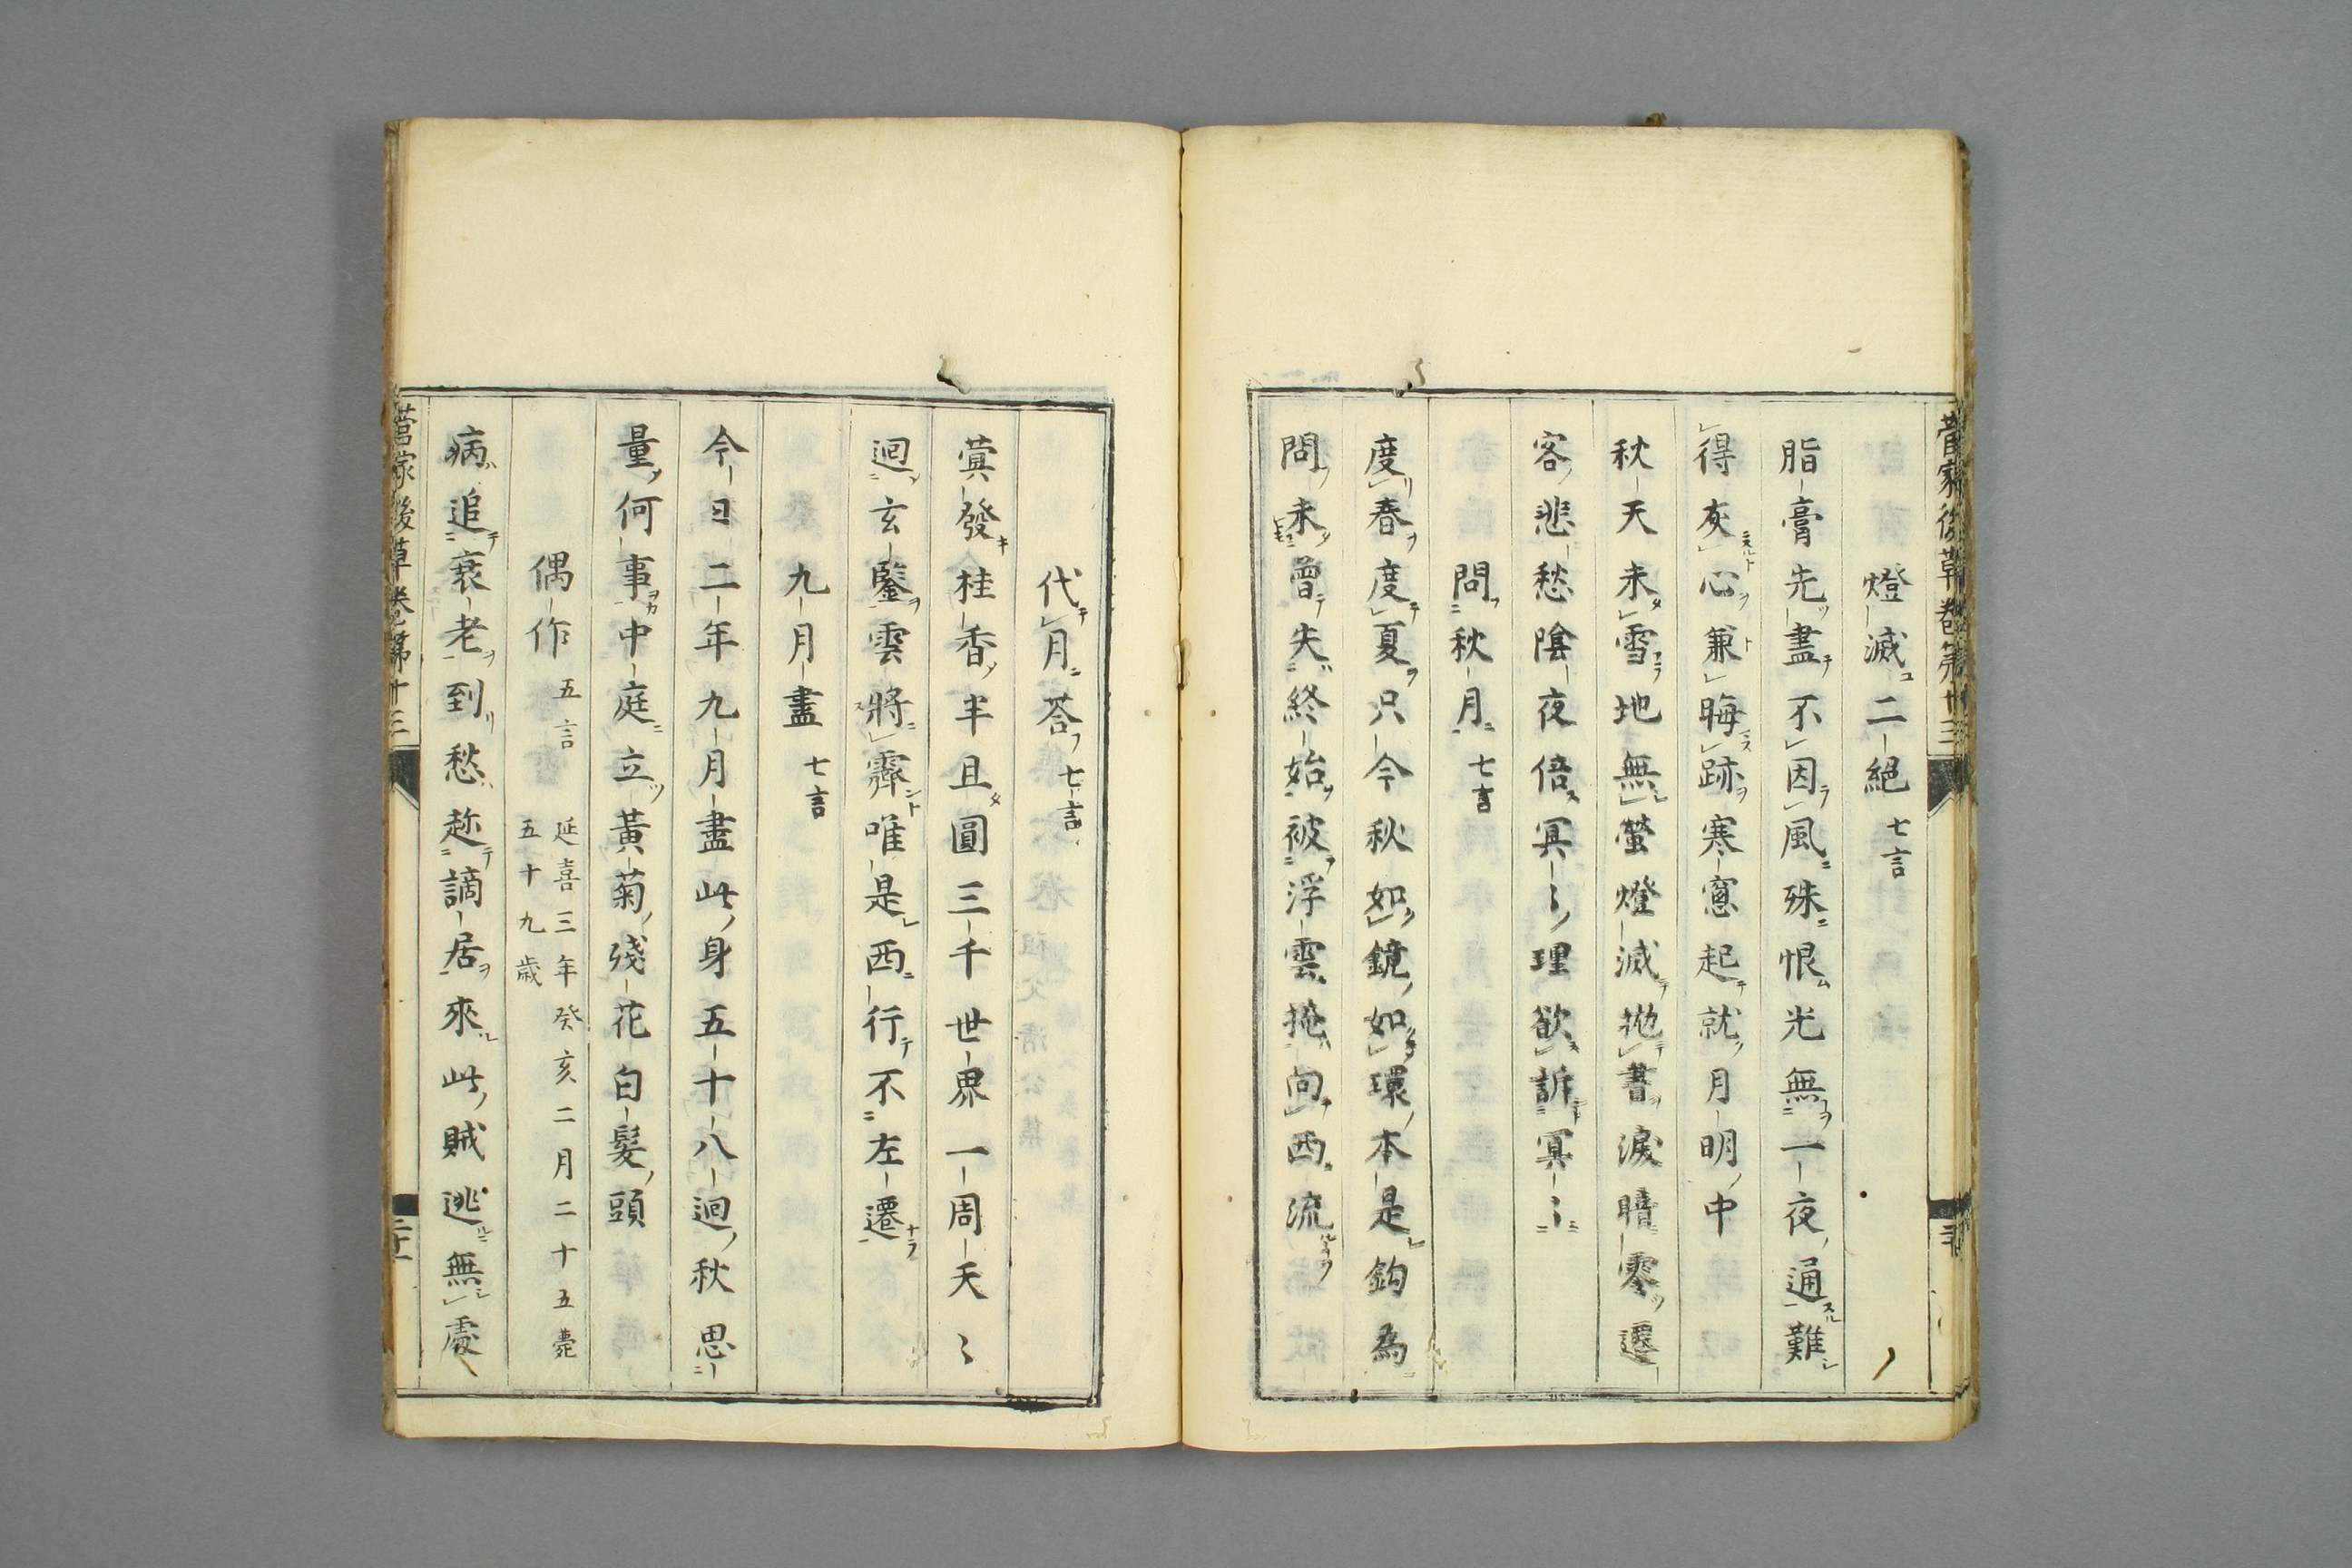 菅家後草卷第十三
燈滅二絕 七言
脂膏先盡不因風殊恨光無一夜通難
得灰心兼晦跡寒窓起就月明中
秋天未雪地無螢燈滅抛書淚暗零遷
客悲愁陰夜倍冥〻理欲訴冥〻
問秋月 七言
度春度夏只今秋如鏡如環本是鈎為
問未曾失終始被浮雲掩向西流
代月荅 七言
蓂發桂香半且圓三千世界一周天〻
迴玄鑒雲將霽唯是西行不左遷
九月盡 七言
今日二年九月盡此身五十八迴秋思
量何事中庭立黃菊殘花白髮頭
偶作 五言 延喜三年癸亥二月二十五薨
五十九歲
病追衰老到愁趂謫居來此賊逃無處
菅家後草卷第十三
二十一